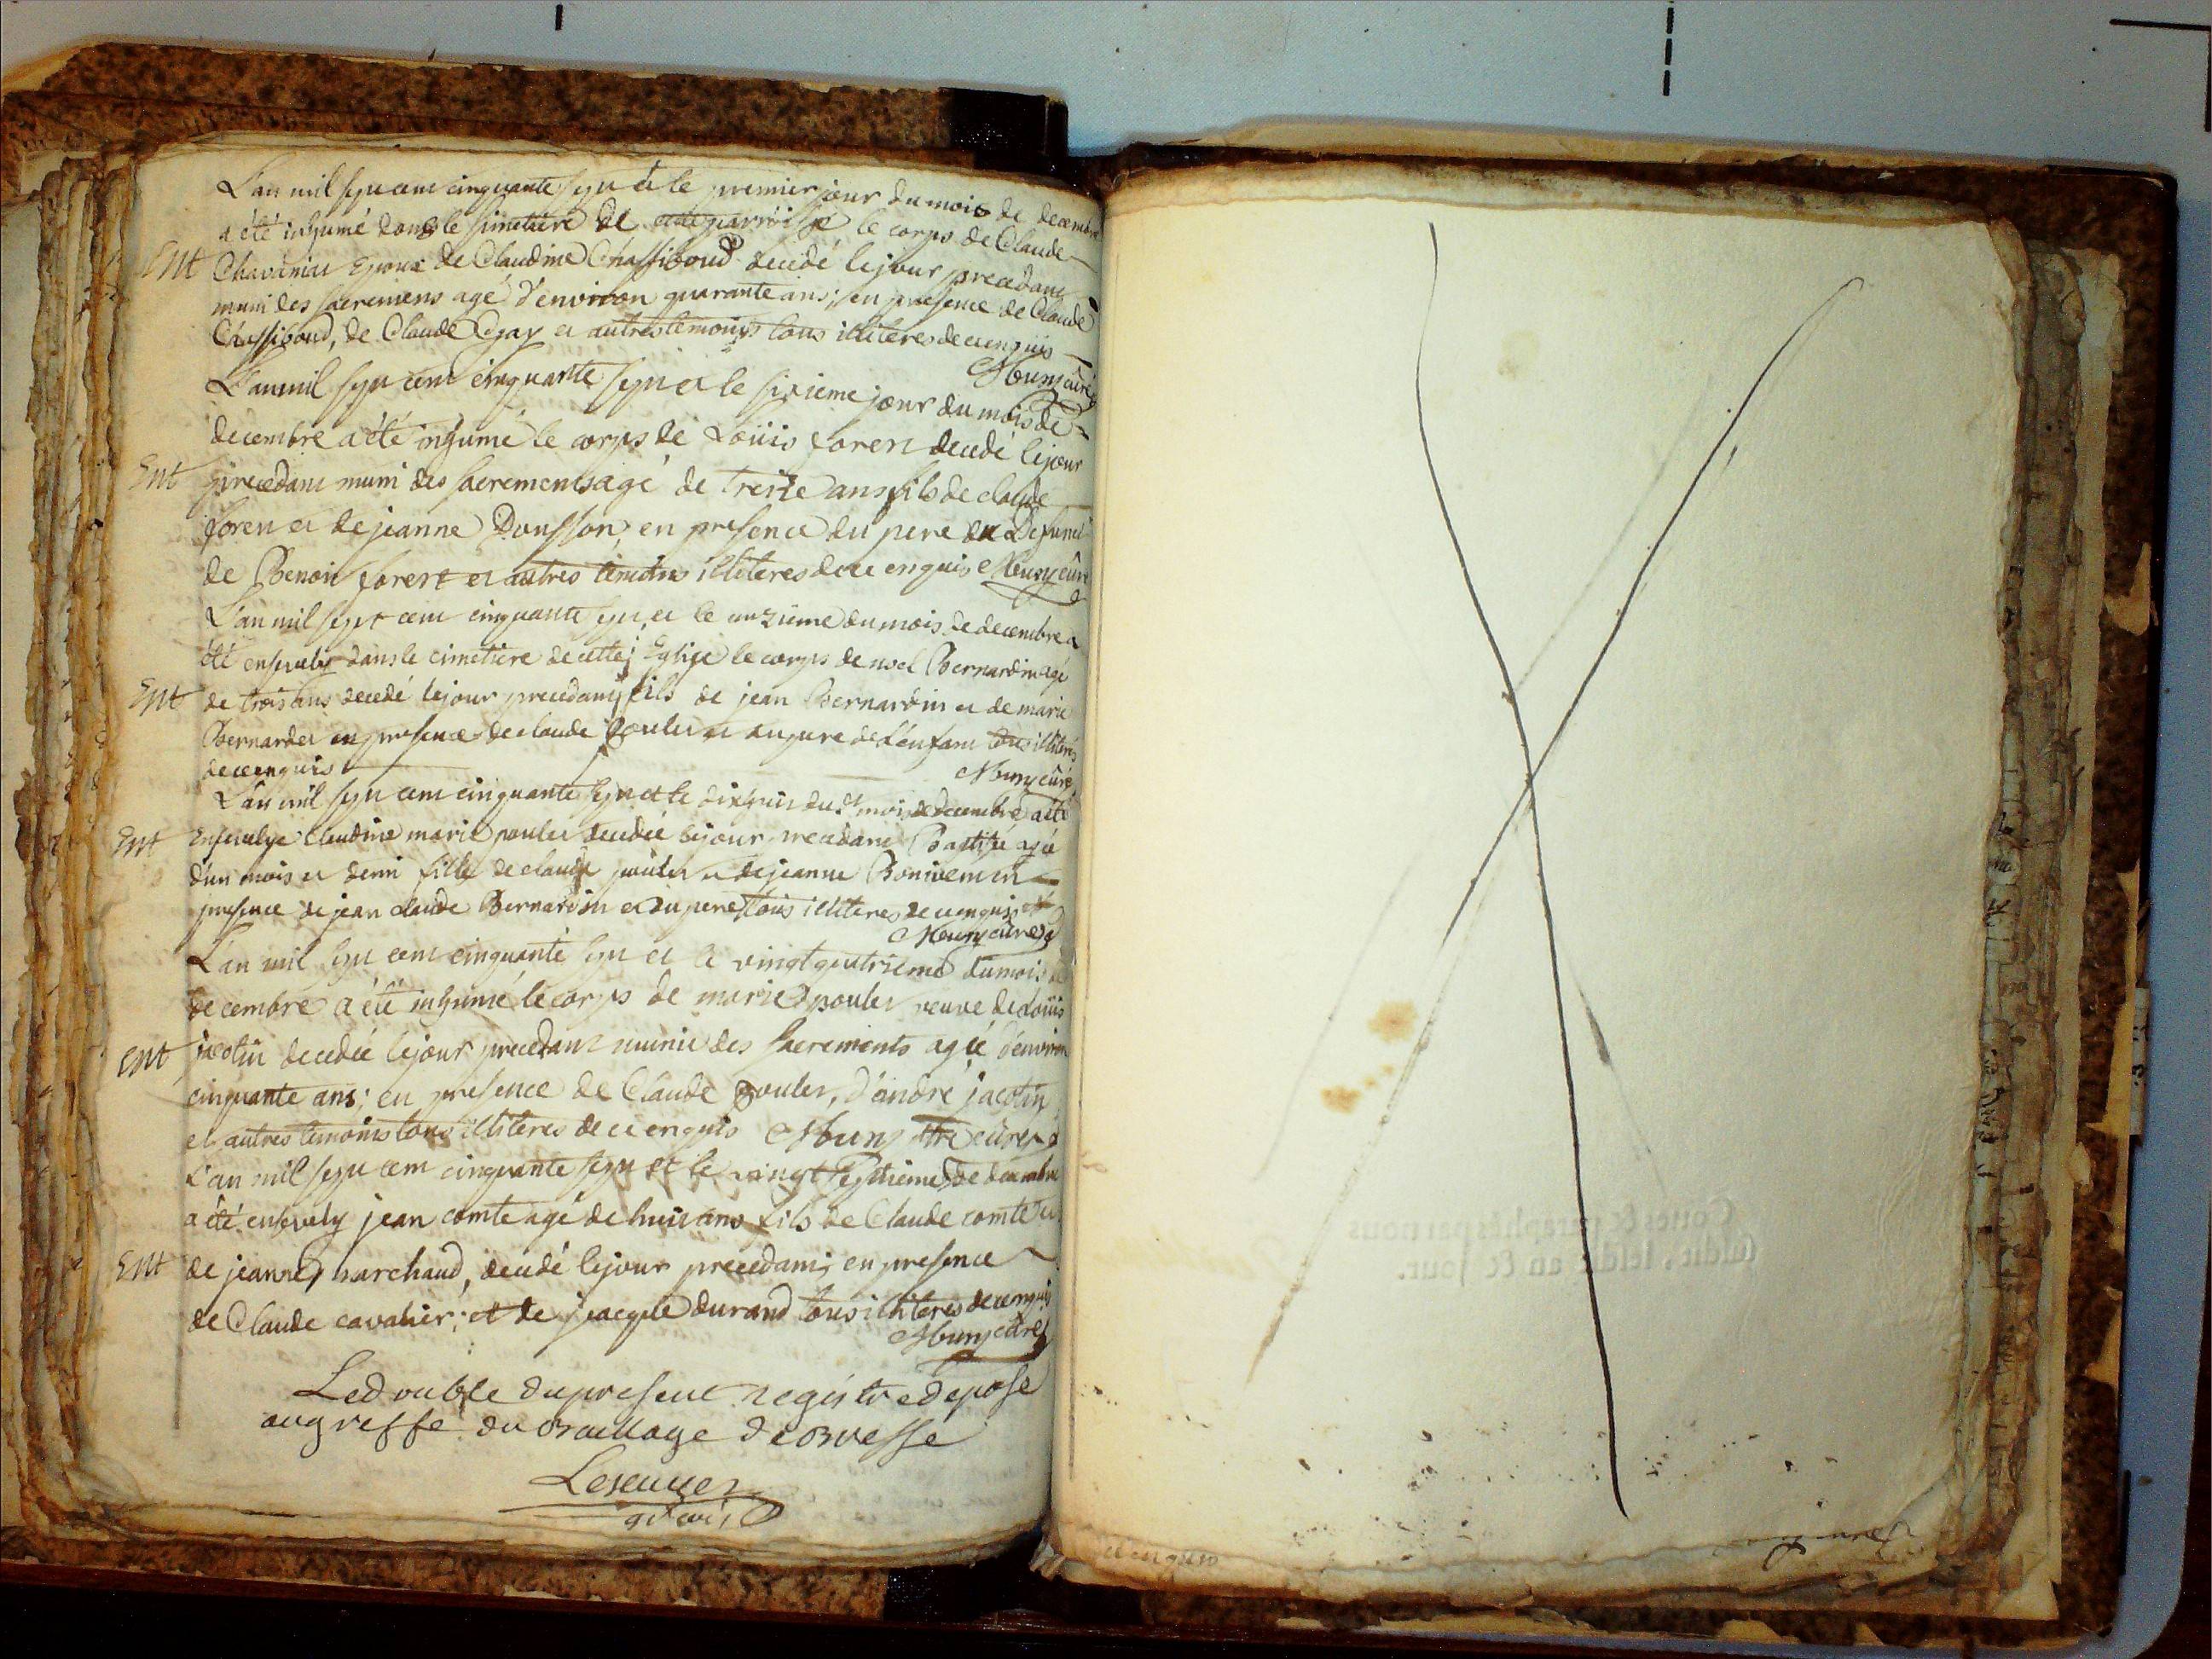 L'an mil sept cent cinquante sept et le premier jour du mois de decembre
a été inhumé dans le simetiere de cette parroisse le corps de Claude
Ent
epoux de Claudine Chassiboud decedé le jour precedant
muni des sacremens agé d'environ quarante ans; en presence de Claude
Chassiboud, de Claude Gay et autres temoins tous illiteres de ce enquis
Muny curé
L'an mil sept cent cinquante sept et le sixieme jour du mois de
decembre a été inhumé le corps de Loüis forest decedé le jour
Ent
precedant muni des sacrements agé de treize ans fils de claude
forest et de jeanne Dousson, en presence du pere du Defunct
de Benoit forest et autres temoins illiteres de ce enquis Muny curé
L'an mil sept cent cinquante sept et le unzieme du mois de decembre a
été ensevely dans le cimetiere de cette Eglise le corps de noel Bernardin agé
Ent
de trois ans decedé le jour precedant fils de jean Bernardin et de marie
Bernarder en presence de claude Poulet et du pere de l'enfant tous illiterés
de ce enquis
Muny curé
L'an mil sept cent cinquante sept et le dixhuit du dt mois de decembre a été
Ent
Ensevelye Claudine marie poulet decedée le jour precedant Baptisé agée
d'un mois et demi fille de claude poulet et de jeanne en
presence de jean claude Bernardin et du pere tous illiteres de ce enquis
Muny curé
L'an mil sept cent cinquante sept et le vingt quatrieme du mois de
decembre a été inhumé le corps de marie poulet veuve de Loüis
Ent
jacotin decedée le jour precedant munie des sacrements agée d'environ
cinquante ans; en presence de Claude Poulet, d'andré jacotin
et autres temoins tous illiteres de ce enquis Muny ptre curé
L'an mil sept cent cinquante sept et le vingt septieme de decembre
a été ensevely jean comte agé de huit ans fils de Claude comte et
Ent
de jeanne marchand, decedé le jour precedant; en presence
de Claude cavalier; et de jacque durand tous illiteres de ce enquis
Muny curé
Le double du present registre deposé
au greffe du Bailliage de Bresse